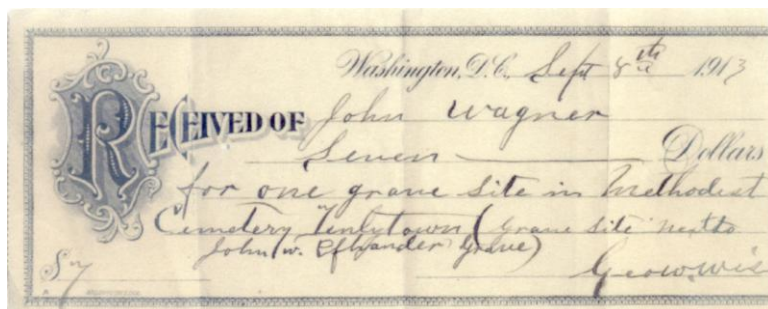 Washington, D.C., Sept 8th 1913
RECEIVED OF John Wagner
Seven Dollars
for one grave site in Methodist
Cemetery Tenlytown (Grave Site next to
John W. Grave)
$7
Geo. W. Wis